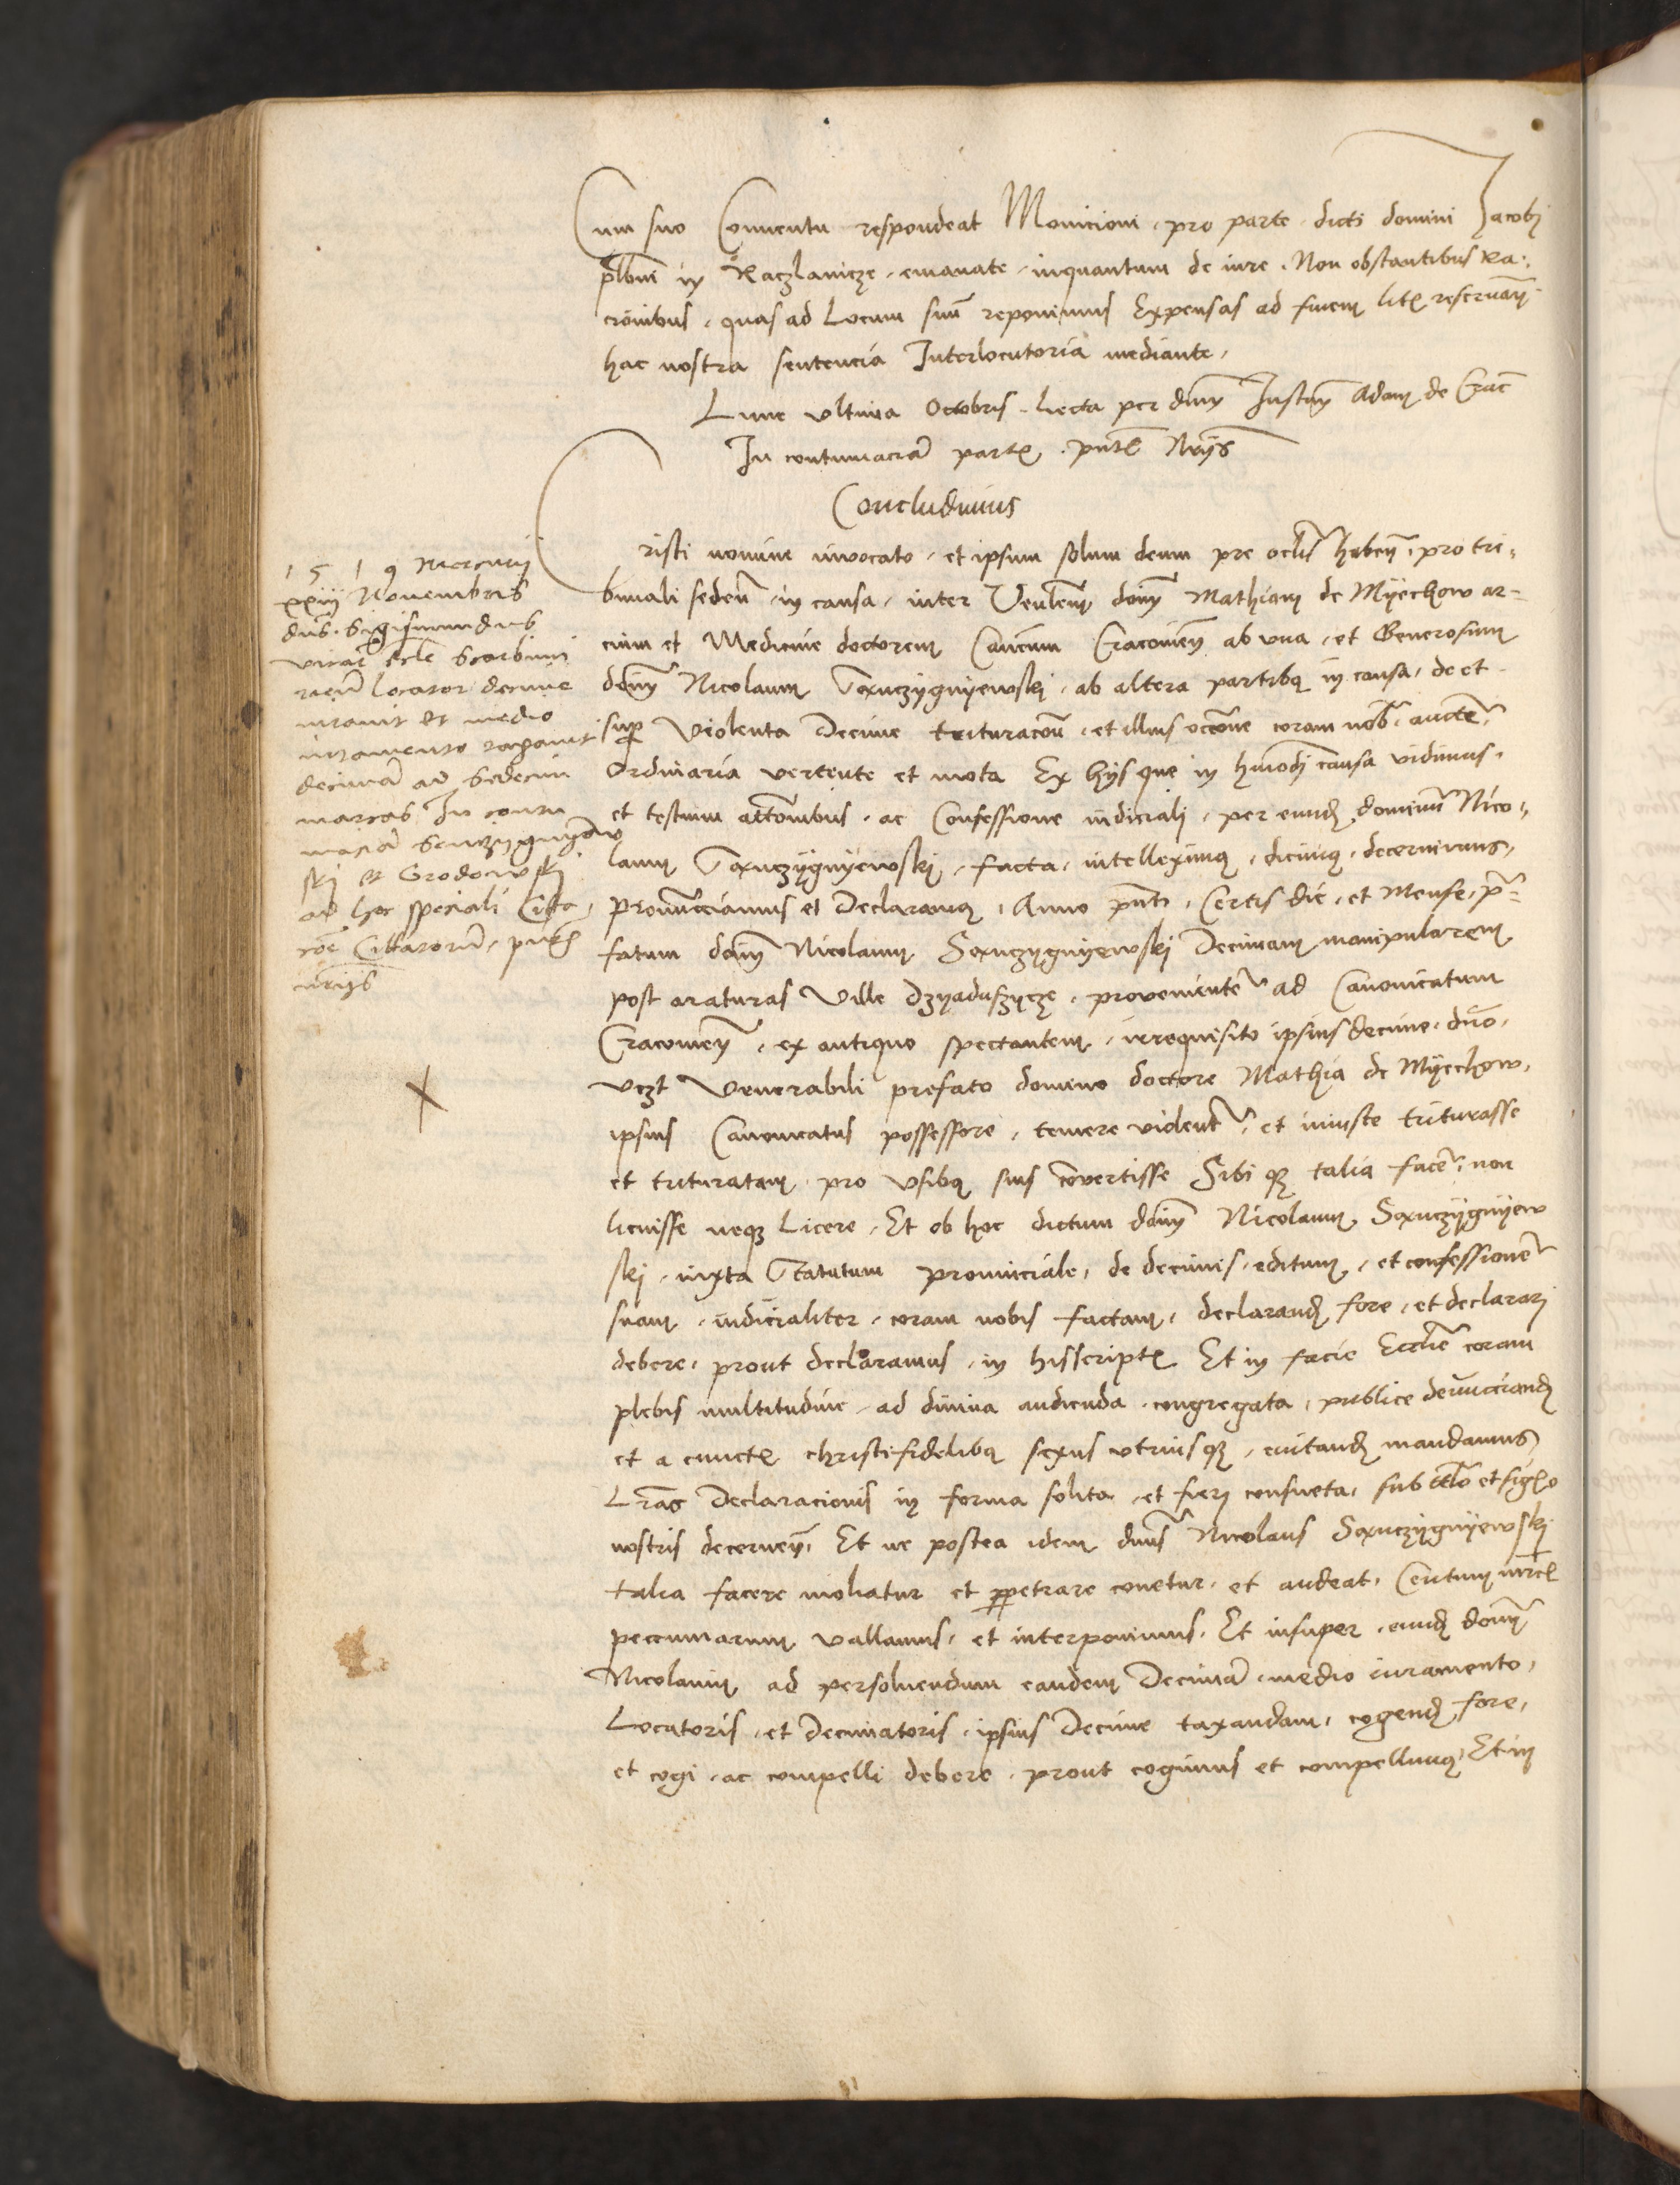 Cum suo Conventu respondeat Monicioni pro parte dicti domini Jacobi
plbni in Raczlavicze emanate inquantum de iure Non obstantibus Ra:
cionibus quas ad Locum suu reponimus Expensas ad finem lit reservan
hac nostra sentencia Interlocutoria mediante
Lune ultima Octobris Lecta per dnm Justum Adam de Crac
In contumacia partis pntib Nrijs
Concludimus
risti nomine invocato et ipsum solum deum pre oclis haben pro tri-
bunali seden in causa inter Venlem dnm Mathiam de Myechow ar=
cium et Medicine doctorem Canicum Cracovien ab una et Generosum
dnm Nicolaum Sanczygnyewski ab altera partibus in causa de et
sup Violenta Decime trituracon et illius occone coram nob aucte
Ordinaria vertente et mota Ex hijs que in hmodi causa vidimus
et testium attonibus ac Confessione iudiciali per eund dominu Nico-
laum Sanczygnyewski facta intelleximus dicimus decernimus
Pronucciamus et Declaramus Anno pnti Certis die et Mense pre=
fatum dnm Nicolaum Sanczygnyewski Decimam manipularem
post araturas Ville Dzyaduszycze proveniente ad Canonicatum
Cracovien ex antiquo spectantem irrequisito ipsius decime duo
vczt Venerabili prefato domino doctore Mathia de Myechow
ipsius Canonicatus possessore temere violent et iniuste triturasse
et trituratam pro usibus suis convertisse Sibi q talia face non
licuisse neq Licere Et ob hoc dictum dnm Nicolaum Sanczygnyew
ski iuxta Statutum provinciale de decimis editum et confessione
suam iudicialiter coram nobis factam declarand fore et declarari
debere prout declaramus in hisscriptis Et in facie Ecclie coram
plebis multitudine ad divina audienda congregata publice denucciand
et a cunctis christifidelibus sexus utriusq evitand mandamus
Lras Declaracionis in forma solita et fieri consueta sub titlo et sigillo
nostris decernen Et ne postea idem dnus Nicolaus Sanczygnyewski
talia facere moliatur et ppetrare conetur et audeat Centum mrcis
peccuniarum vallamus et interponimus Et insuper eund dnm
Nicolaum ad persolvendum eandem Decima medio iuramento
Locatoris et decimatoris ipsius Decime taxandam cogend fore
et cogi ac compelli debere prout cogimus et compellimus Et in
1519 Mercurij
xxiij Novembris
dns Sigismundus
vicar ecle Scarbimi
rien locator decime
iuravit et medio
iuramento taxavit
decima ad sedecim
marcas In contu
macia Sanczygnyew
skj et Grodowskj
ad hoc speciali Citta
coe Cittatoru pntib
nrijs